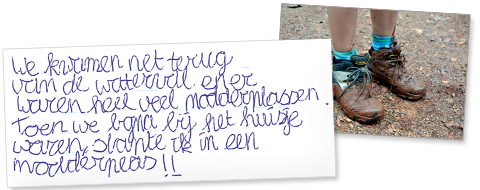 We kwamen net terug
van de waterval er
waren heel veel modderplassen.
Toen we bijna bij het huisje
waren, stapte ik in een
modderplas!!